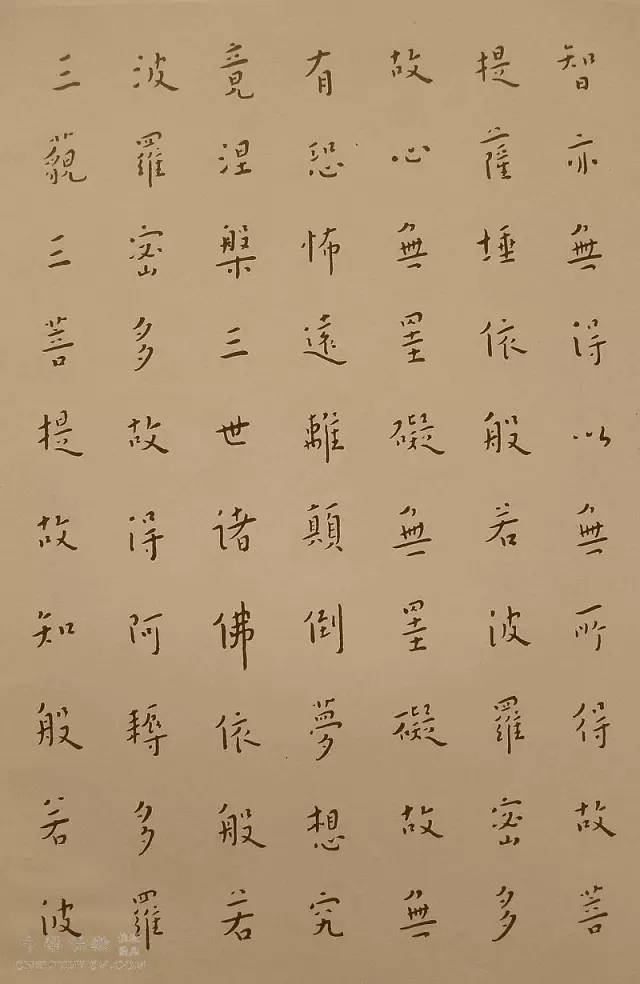 智亦無得以無所得故菩
提薩埵依般若波羅密多
故心無罣礙無罣礙故無
有恐怖遠離顛倒夢想究
竟涅槃三世諸佛依般若
波羅密多故得阿耨多羅
三藐三菩提故知般若波